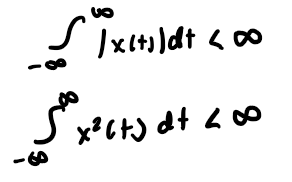 ∫_{-∞}^{∞} |x(t)|dt < ∞
∫_{-∞}^{∞} x²(t) dt < ∞